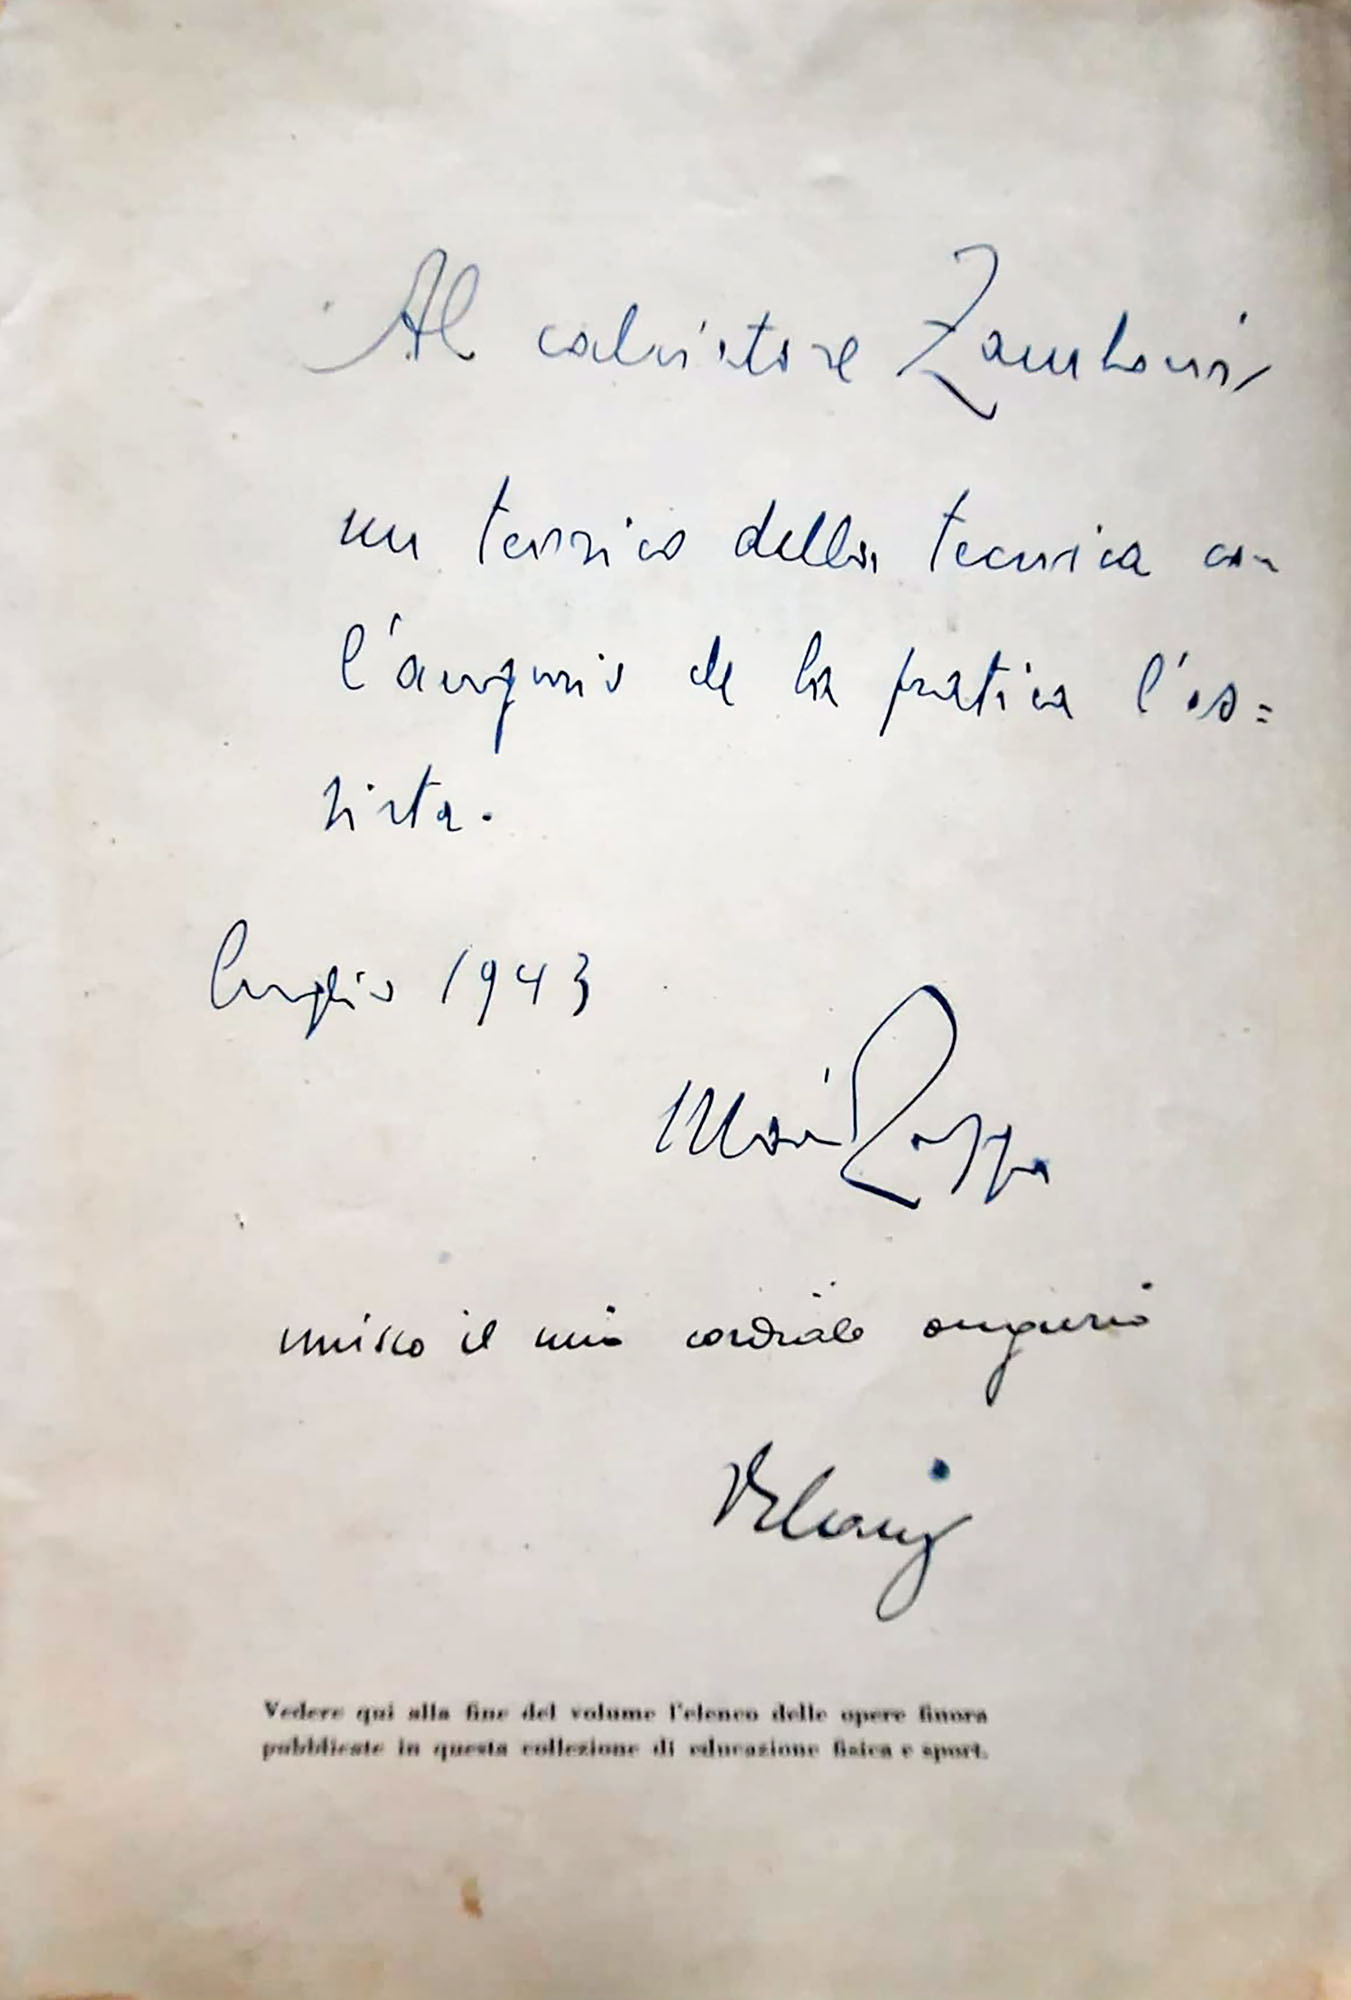 Al calciatore Zamboni
un teorico della tecnica con
l'augurio che la pratica l'as=
sista.
luglio 1943
Mario Zappa
unisco il mio cordiale augurio
Vedere qui alla fine del volume l'elenco delle opere finora
pubblicate in questa collezione di educazione fisica e sport.